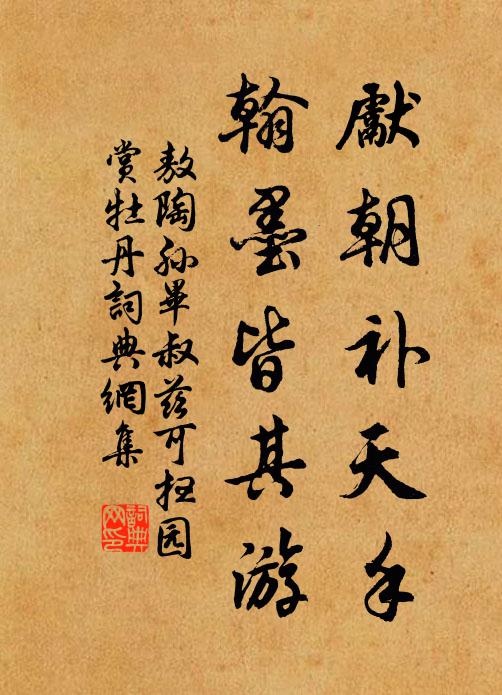 獻朝补天手
翰墨皆其游
敖陶孫畢叔茲可拒园
赏牡丹詞典網集
詞典网印